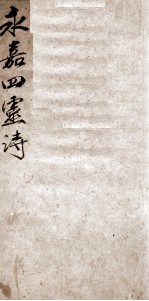 永嘉四靈詩